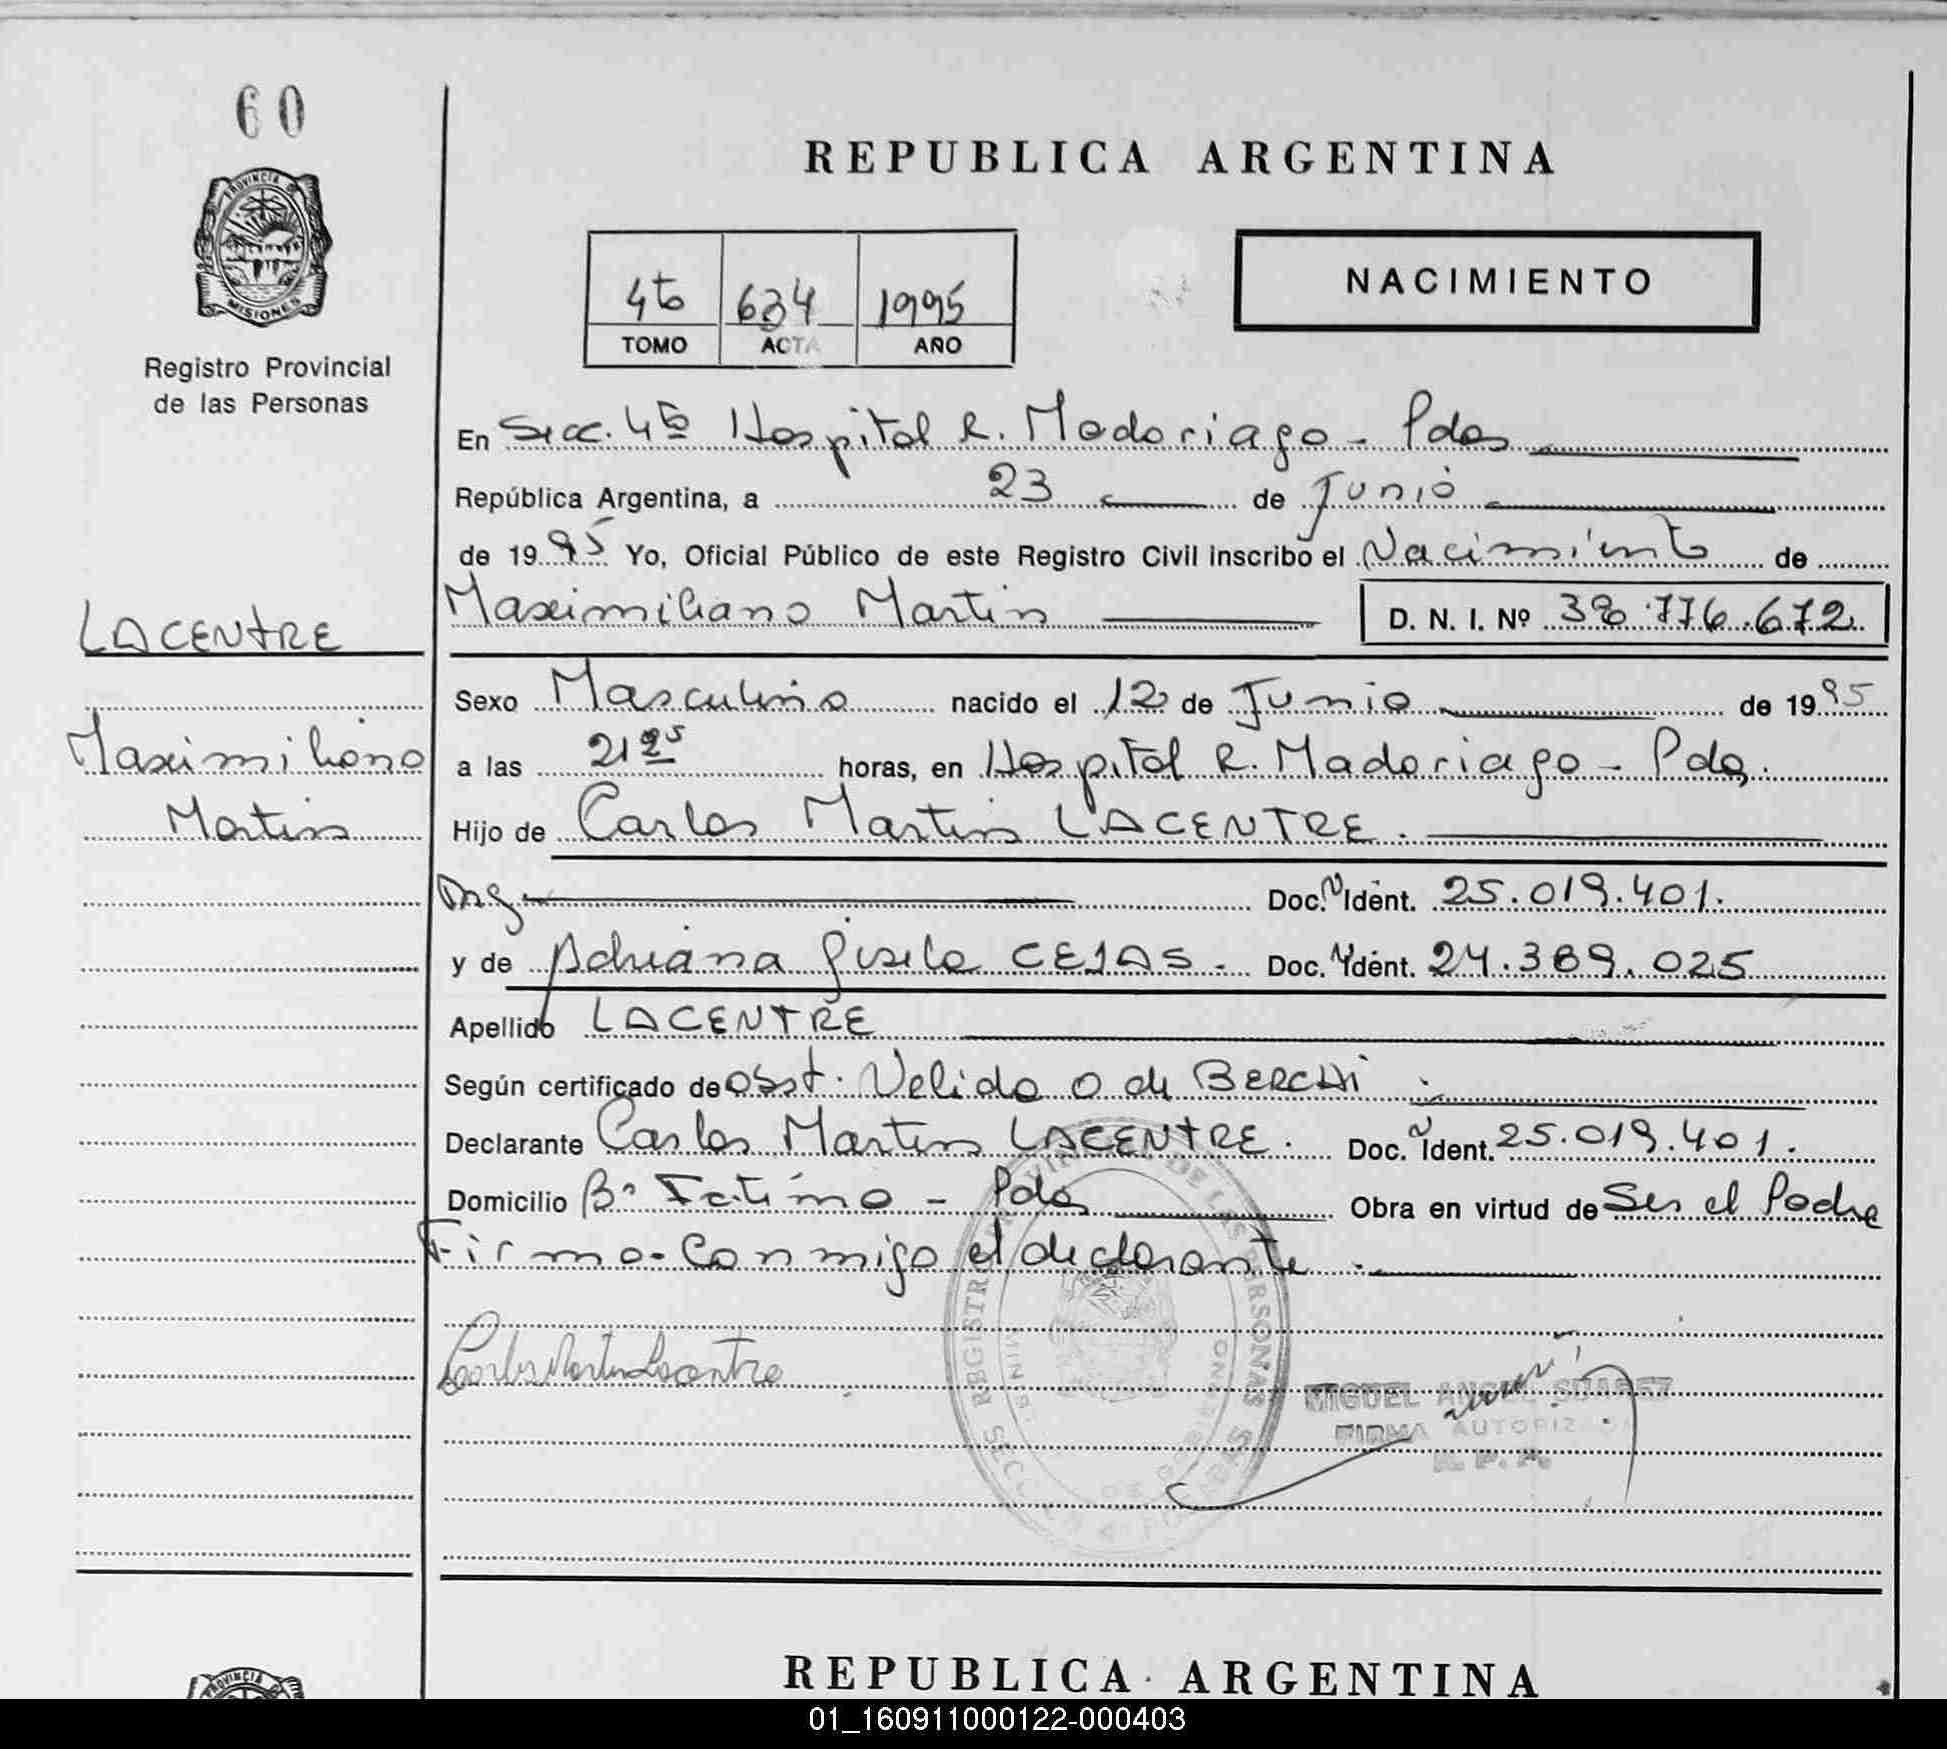 60
PROVINCIA DE
MISIONES
Registro Provincial
de las Personas
REPUBLICA ARGENTINA
4to 634 1995
TOMO ACTA AÑO
NACIMIENTO
En Secc. 4ta Hospital R. Madariaga - Pdas
República Argentina, a 23 de Junio
de 1995 Yo, Oficial Público de este Registro Civil inscribo el Nacimiento de
LACENTRE
Maximiliano Martin D. N. I. Nº 38.776.672.
Sexo Masculino nacido el 12 de Junio de 1995
Maximiliano
a las 21 25 horas, en Hospital R. Madariaga - Pdas.
Martin
Hijo de Carlos Martin LACENTRE.
Arg. Doc. N Ident. 25.019.401.
y de Adriana Gisela CEJAS. Doc. N Ident. 24.389.025
Apellido LACENTRE
Según certificado de Obst. Velida O de BERCHI
Declarante Carlos Martin LACENTRE. Doc. N Ident. 25.019.401.
Domicilio Bº Fatima - Pdas Obra en virtud de Ser el Padre
Firma Conmigo el declarante.
Carlos Martin Lacentre
MIGUEL ANGEL SUAREZ
FIRMA AUTORIZADA
R. P. P.
REPUBLICA ARGENTINA
PROVINCIA DE
01_160911000122-000403